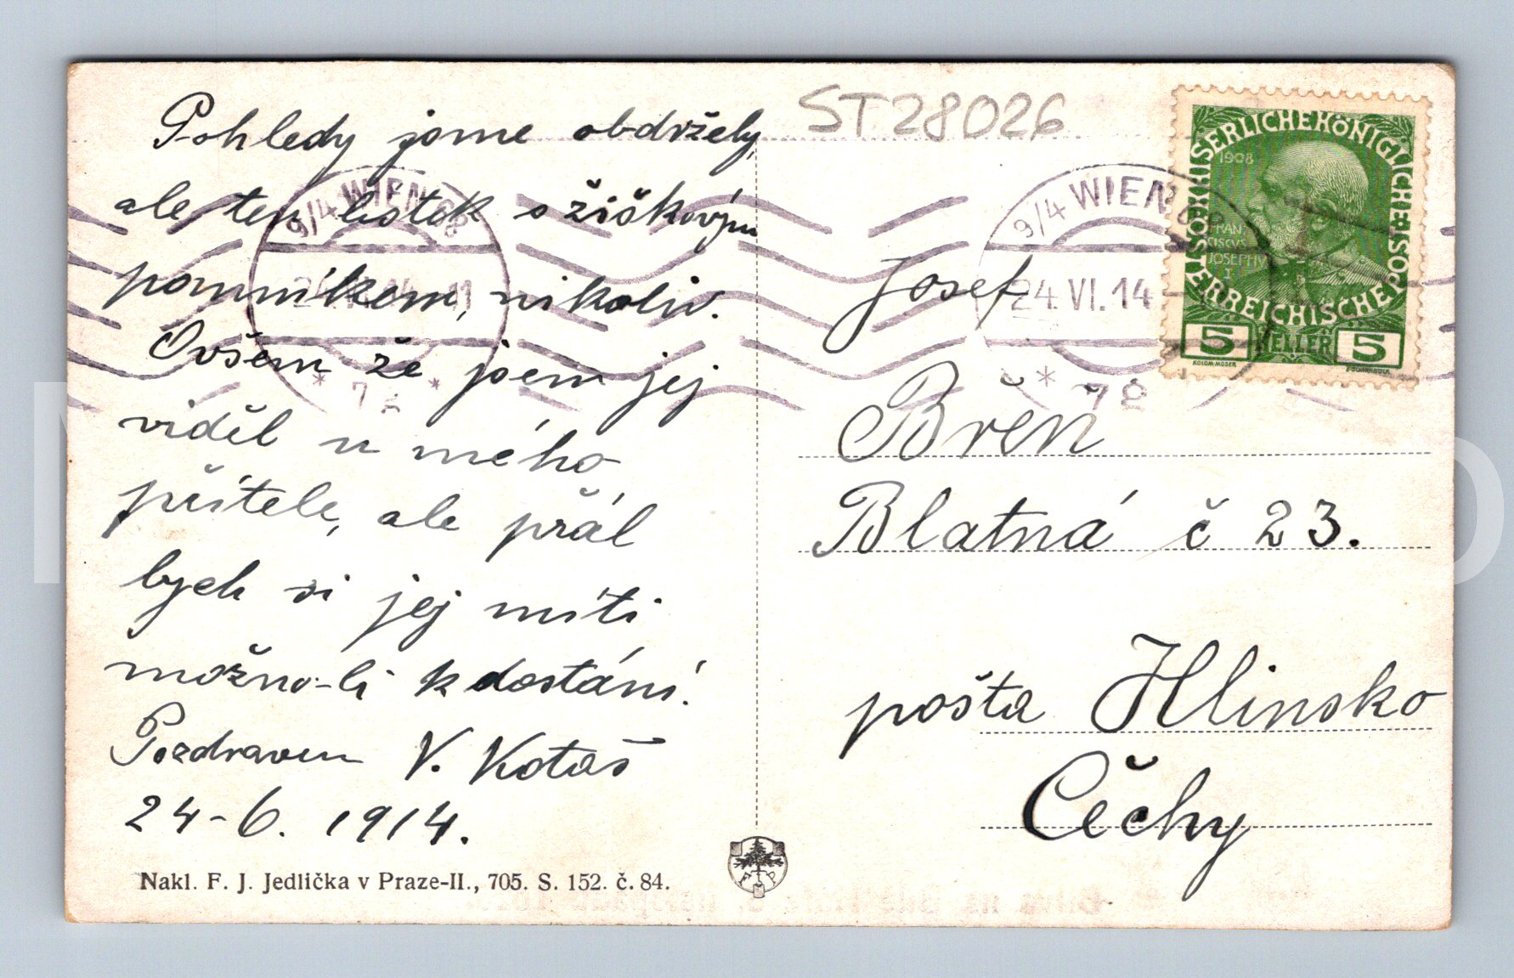 ST28026
Pohledy jsme obdrželi,
ale ten lístek s žižkovým
pomníkem, nikoliv.
Ovšem že jsem jej
viděl u mého
přítele, ale přál
bych si jej míti
možno-li k dostání.
Pozdravem V. Kotas
24-6. 1914.
Nakl. F. J. Jedlička v Praze-II., 705. S. 152. č. 84.
F P
9/4 WIEN 68
24. VI. 14 - 11
* 7g *
9/4 WIEN 68
24. VI. 14
* 7g
KAISERLICHE KÖNIGLICHE ÖSTERREICHISCHE POST
1908
FRAN
CISCVS
JOSEPHV
I
5 HELLER 5
KOLOM·MOSER
Josef
Břeň
Blatná č 23.
pošta Hlinsko
Čechy